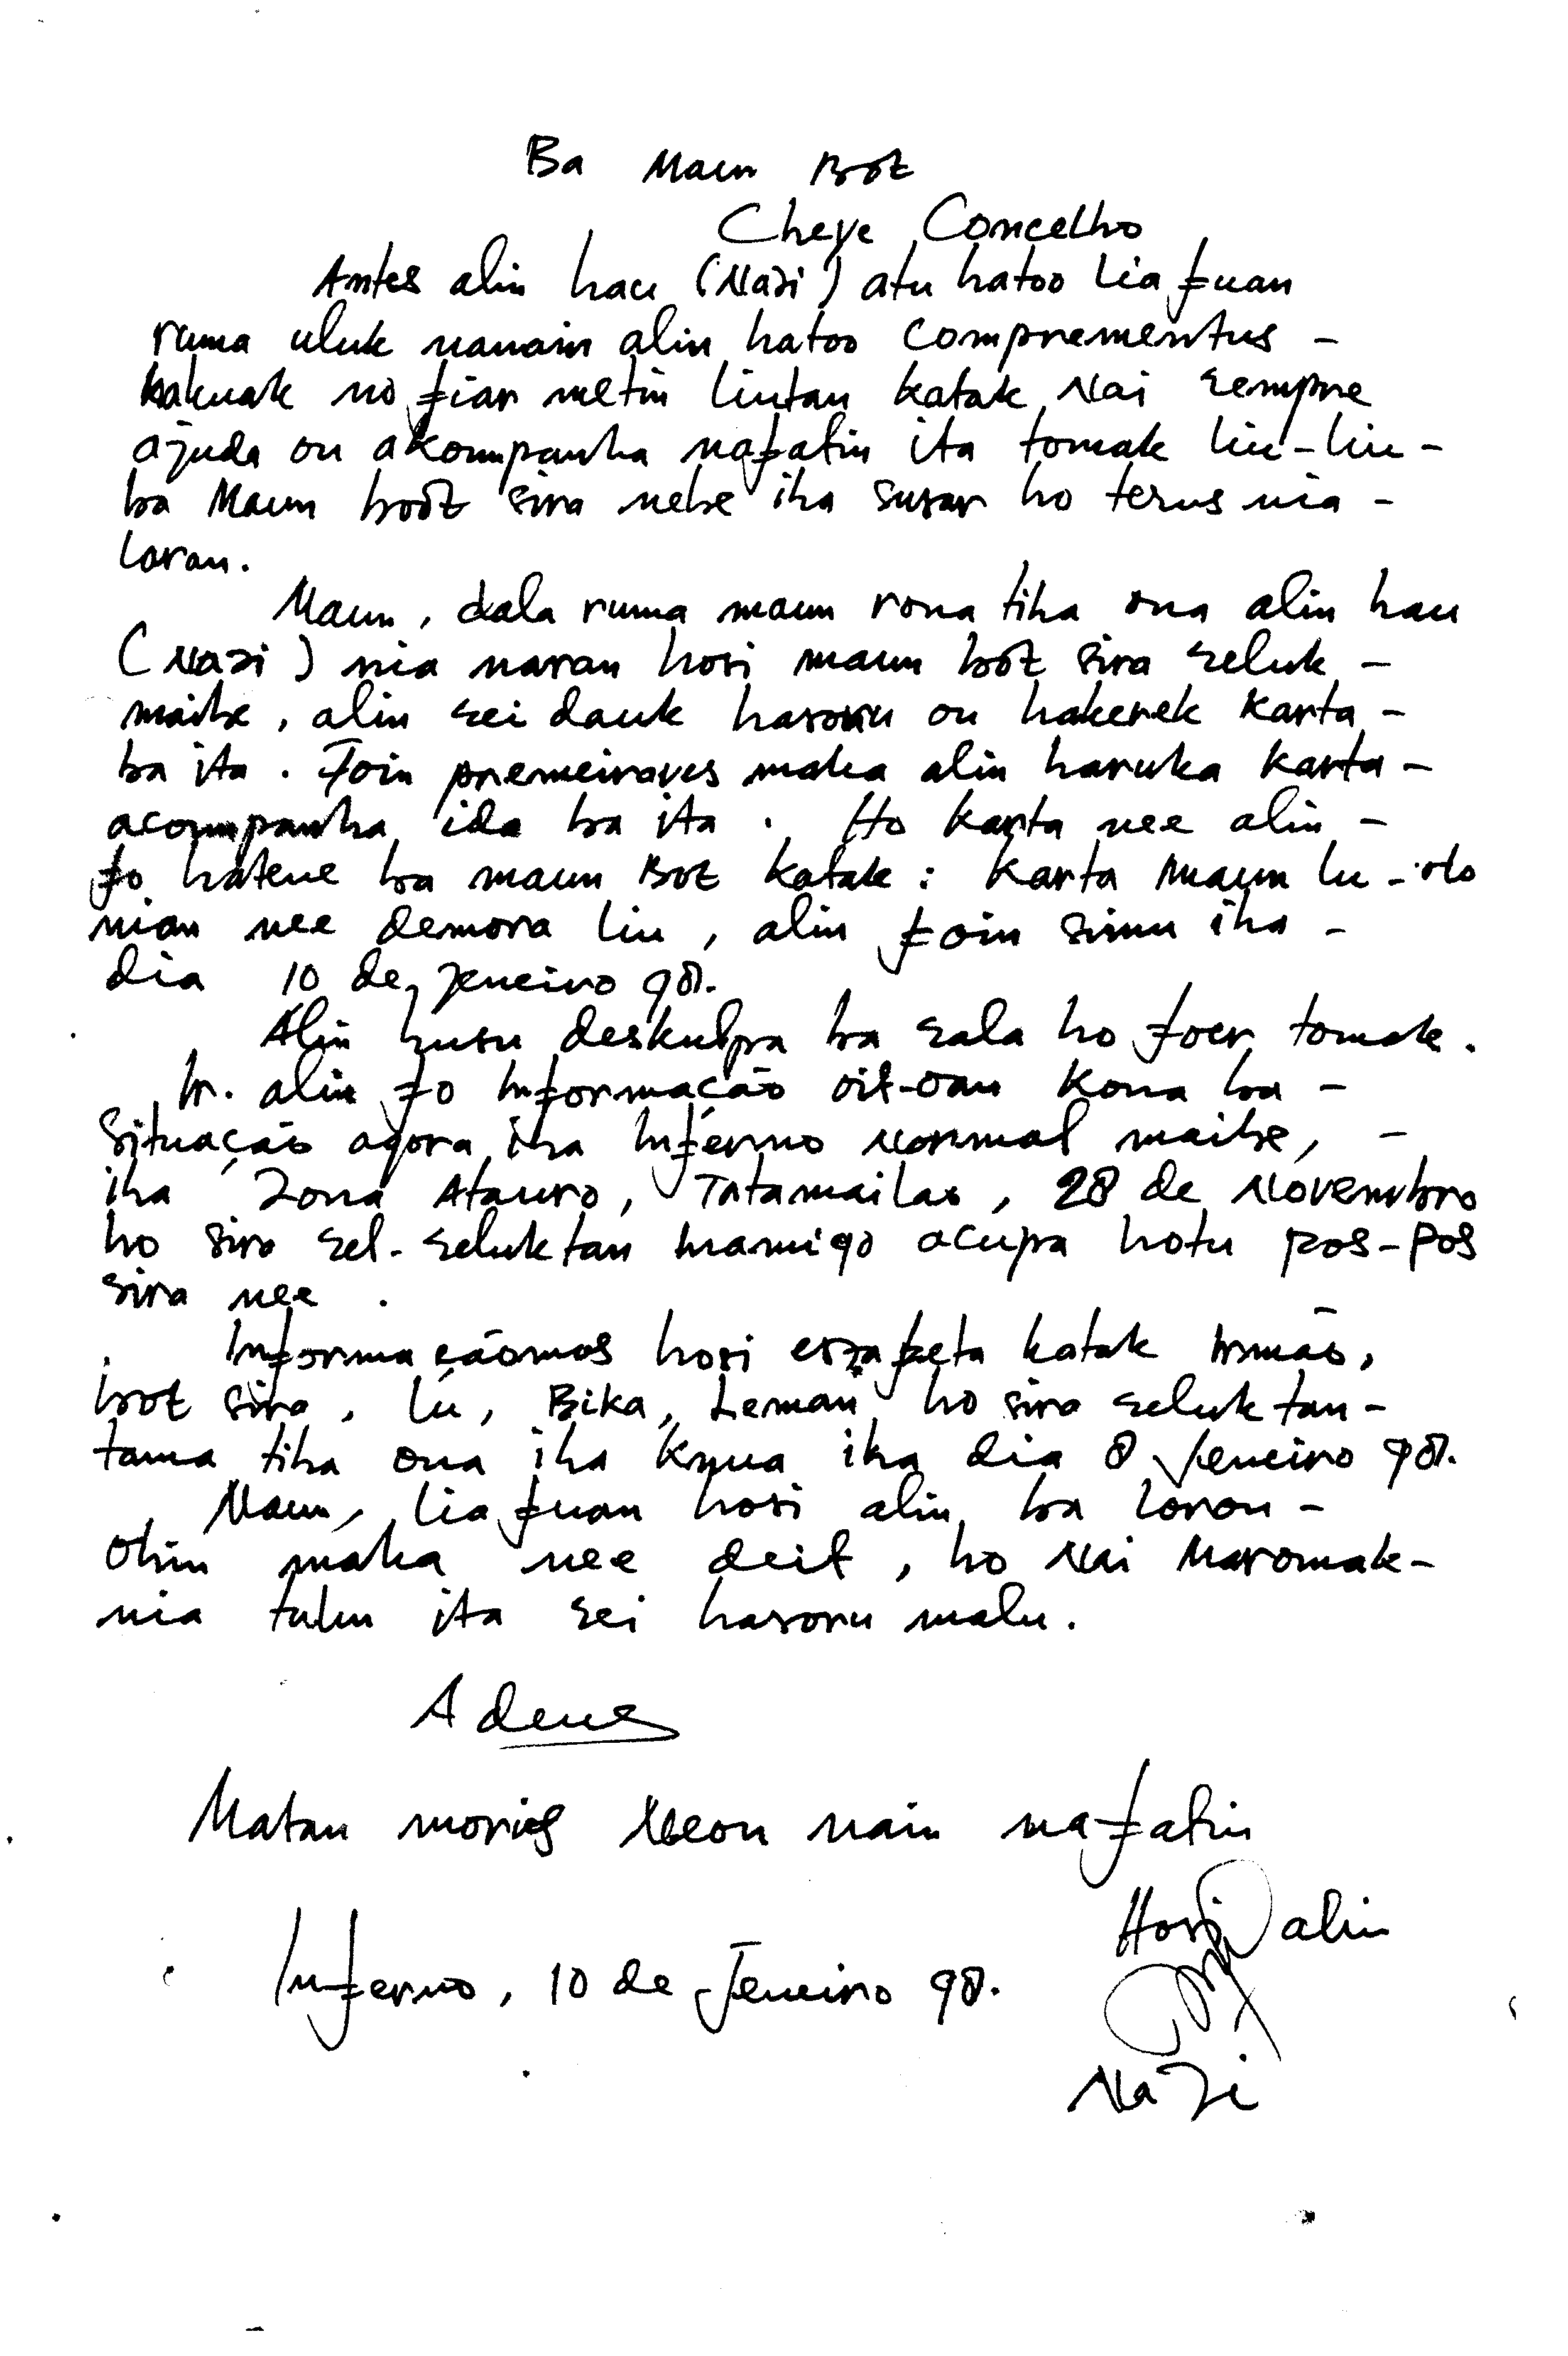 Ba Maun Bot
Cheye Concelho
Antes alin hau (Nazi) atu hatoo lia fuan
ruma uluk nanain alin hatoo comprementus -
hakuak no fiar metin liutan katak Nai sempre
ajuda ou akompanha nafatin ita tomak liu-liu -
ba Maun boot sira nebe iha susar ho terus nia -
laran.
Maun, dala ruma maun rona tiha ona alin hau
(Nazi) nia naran hosi maun bot sira seluk -
maibe, alin sei dauk hasoru ou hakerek karta -
ba ita. Foin premeiraves maka alin haruka karta -
acompanha ida ba ita. Ho karta nee alin -
fo hatene ba maun Bot katak: Karta Maun lu-olo
nian nee demora liu, alin foin simu iha -
dia 10 de Jeneiro 98.
Alin husu deskulpa ba sala ho foer tomak.
Ir. alin fo Informação oit-oan kona ba -
situação agora iha Inferno Normal maibe, -
iha Zona Atauro, Tatamailao, 28 de Novembro
ho sira sel-seluktan inamigo acupa hotu pos-pos
sira nee.
Informaçãomos hosi estafeta katak Irmão,
bot sira, Lú, Bika, Leman ho sira seluk tan -
tama tiha ona iha knua iha dia 8 Jeneiro 98.
Maun, lia fuan hosi alin ba loron -
Ohin maka nee deit, ho Nai Maromak -
nia tulun ita sei hasoru malu.
Adeus
Matan moris Neon nain nafatin
Hosi alin
Inferno, 10 de Jeneiro 98.
Nazi